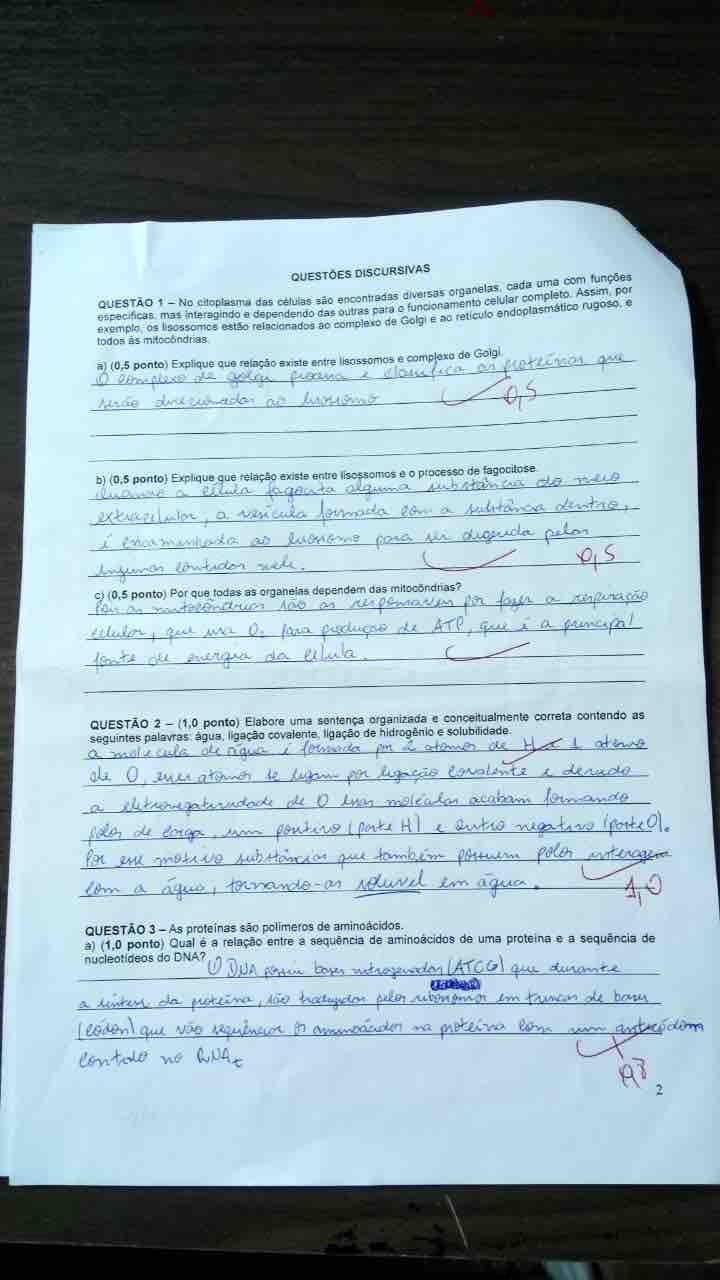 QUESTÕES DISCURSIVAS
QUESTÃO 1 – No citoplasma das células são encontradas diversas organelas, cada uma com funções
específicas, mas interagindo e dependendo das outras para o funcionamento celular completo. Assim, por
exemplo, os lisossomos estão relacionados ao complexo de Golgi e ao retículo endoplasmático rugoso, e
todos às mitocôndrias.
a) (0,5 ponto) Explique que relação existe entre lisossomos e complexo de Golgi.
O complexo de golgi e classifica as proteínas que
serão direcionadas ao
0,5
b) (0,5 ponto) Explique que relação existe entre lisossomos e o processo de fagocitose.
Quando a célula fagocita alguma substância do meio
extracelular, a vesícula formada com a substância dentro,
é encaminhada ao para ser digerida pelas
enzimas contidas nele.
0,5
c) (0,5 ponto) Por que todas as organelas dependem das mitocôndrias?
Pois as mitocôndrias são as por fazer a respiração
celular, que usa O₂ para produção de ATP, que é a principal
fonte de energia da célula.
QUESTÃO 2 – (1,0 ponto) Elabore uma sentença organizada e conceitualmente correta contendo as
seguintes palavras: água, ligação covalente, ligação de hidrogênio e solubilidade.
a molécula de água é formada por 2 átomos de H e 1 átomo
de O, esses átomos se ligam por ligação covalente e devido
a eletronegatividade de O essas moléculas acabam formando
polos de carga, um positivo (parte H) e outro negativo (parte O).
Por esse motivo substâncias que também possuem polos interagem
com a água, tornando-as solúvel em água.
1,0
QUESTÃO 3 – As proteínas são polímeros de aminoácidos.
a) (1,0 ponto) Qual é a relação entre a sequência de aminoácidos de uma proteína e a sequência de
nucleotídeos do DNA?
O DNA possui bases nitrogenadas (ATCG) que durante
a síntese da proteína, são traduzidas pelos ribossomos em trincas de bases
(códon) que vão sequênciar os aminoácidos na proteína com um anticódon
contido no RNAt
2